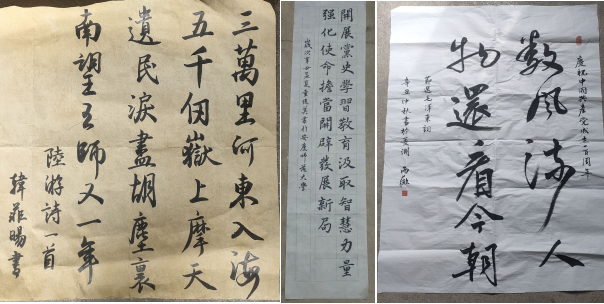 三萬里河東入海
五千仞嶽上摩天
遺民淚盡胡塵裏
南望王師又一年
陸游詩一首
韓菲暘書
開展黨史學習教育汲取智慧力量
強化使命擔當開辟發展新局
慶祝中國共產黨成立一百周年
數風流人
物還看今朝
節選毛澤東詞